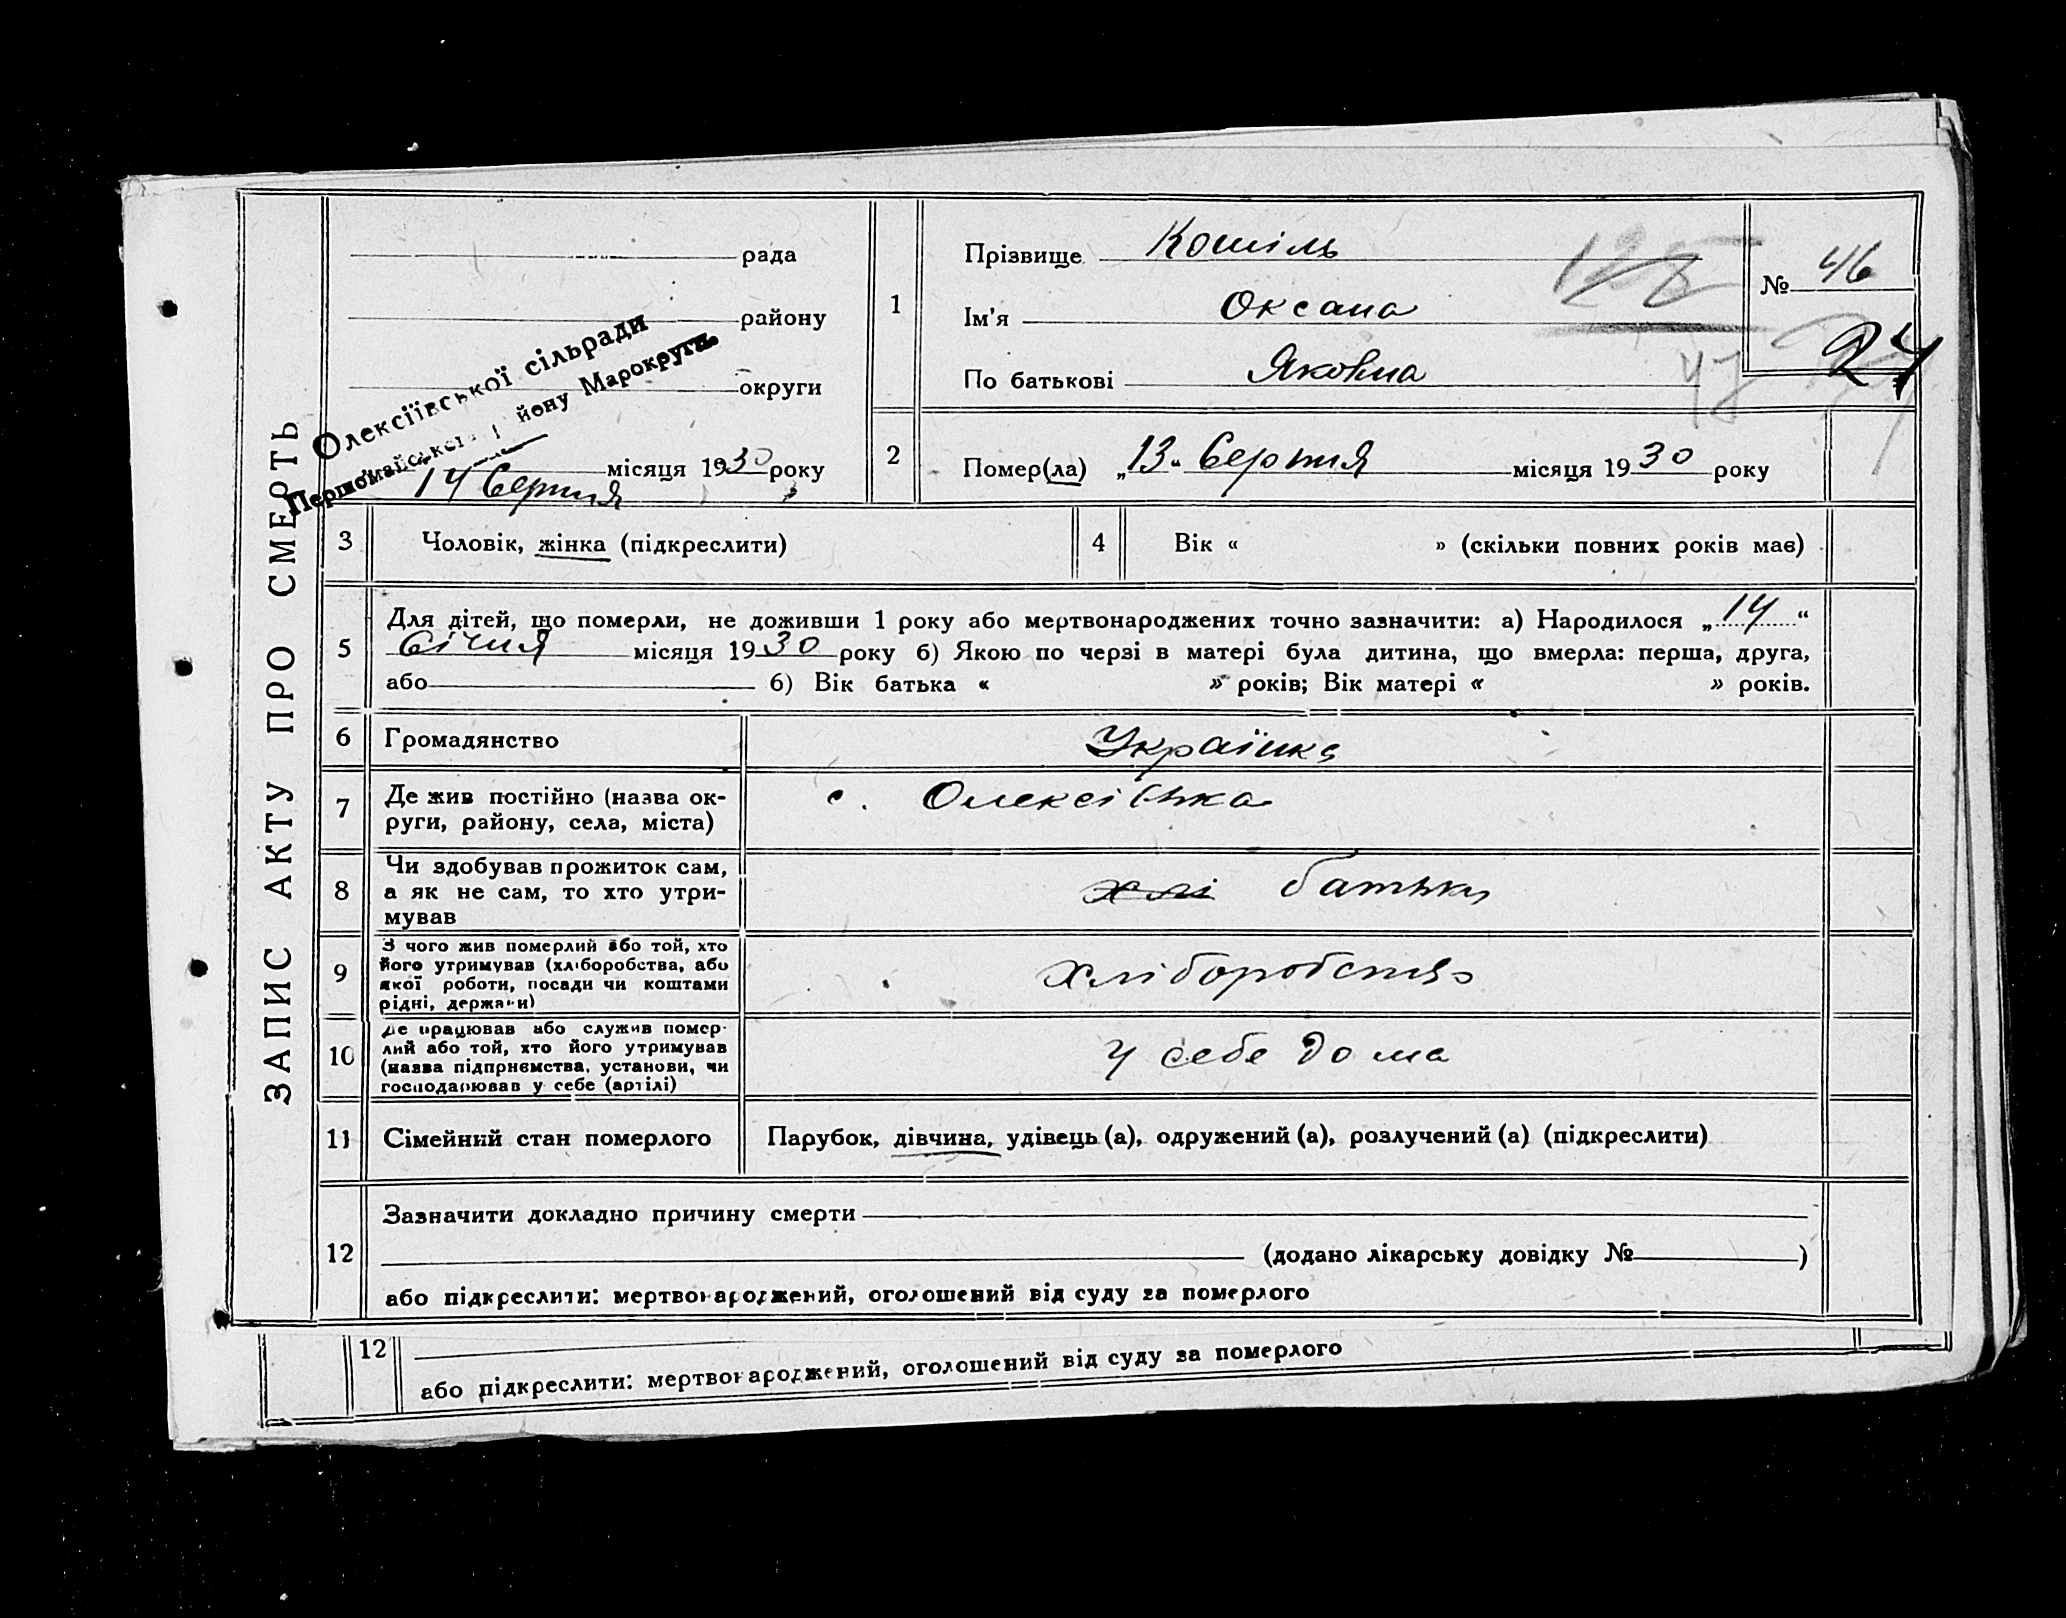 ЗАПИС АКТУ ПРО СМЕРТЬ
рада
району
округи
Олексіївської сільради
Першомайськ йону Марокруги
14 Серпня місяця 1930 року
1
Прізвище Кошіль
Ім'я Оксана
По батькові Яковна
125
47
№ 46
24
2
Помер(ла) „13“ Серпня місяця 1930 року
3
Чоловік, жінка (підкреслити)
4
Вік « » (скільки повних років має)
5
Для дітей, що померли, не доживши 1 року або мертвонароджених точно зазначити: а) Народилося „14“
Січня місяця 1930 року б) Якою по черзі в матері була дитина, що вмерла: перша, друга,
або 6) Вік батька « » років; Вік матері « » років.
6
Громадянство Українка
7
Де жив постійно (назва ок-
руги, району, села, міста)
с. Олексіївка
8
Чи здобував прожиток сам,
а як не сам, то хто утри-
мував
хлі батьки
9
З чого жив померлий або той, хто
його утримував (хліборобства, або
якої роботи, посади чи коштами
рідні, держави)
Хліборобство
10
Де працював або служив помер-
лий або той, хто його утримував
(назва підприємства, установи, чи
господарював у себе (артілі)
У себе дома
11
Сімейний стан померлого
Парубок, дівчина, удівець (а), одружений (а), розлучений (а) (підкреслити)
12
Зазначити докладно причину смерти
(додано лікарську довідку № )
або підкреслити: мертвонароджений, оголошений від суду за померлого
12
або підкреслити: мертвонароджений, оголошений від суду за померлого